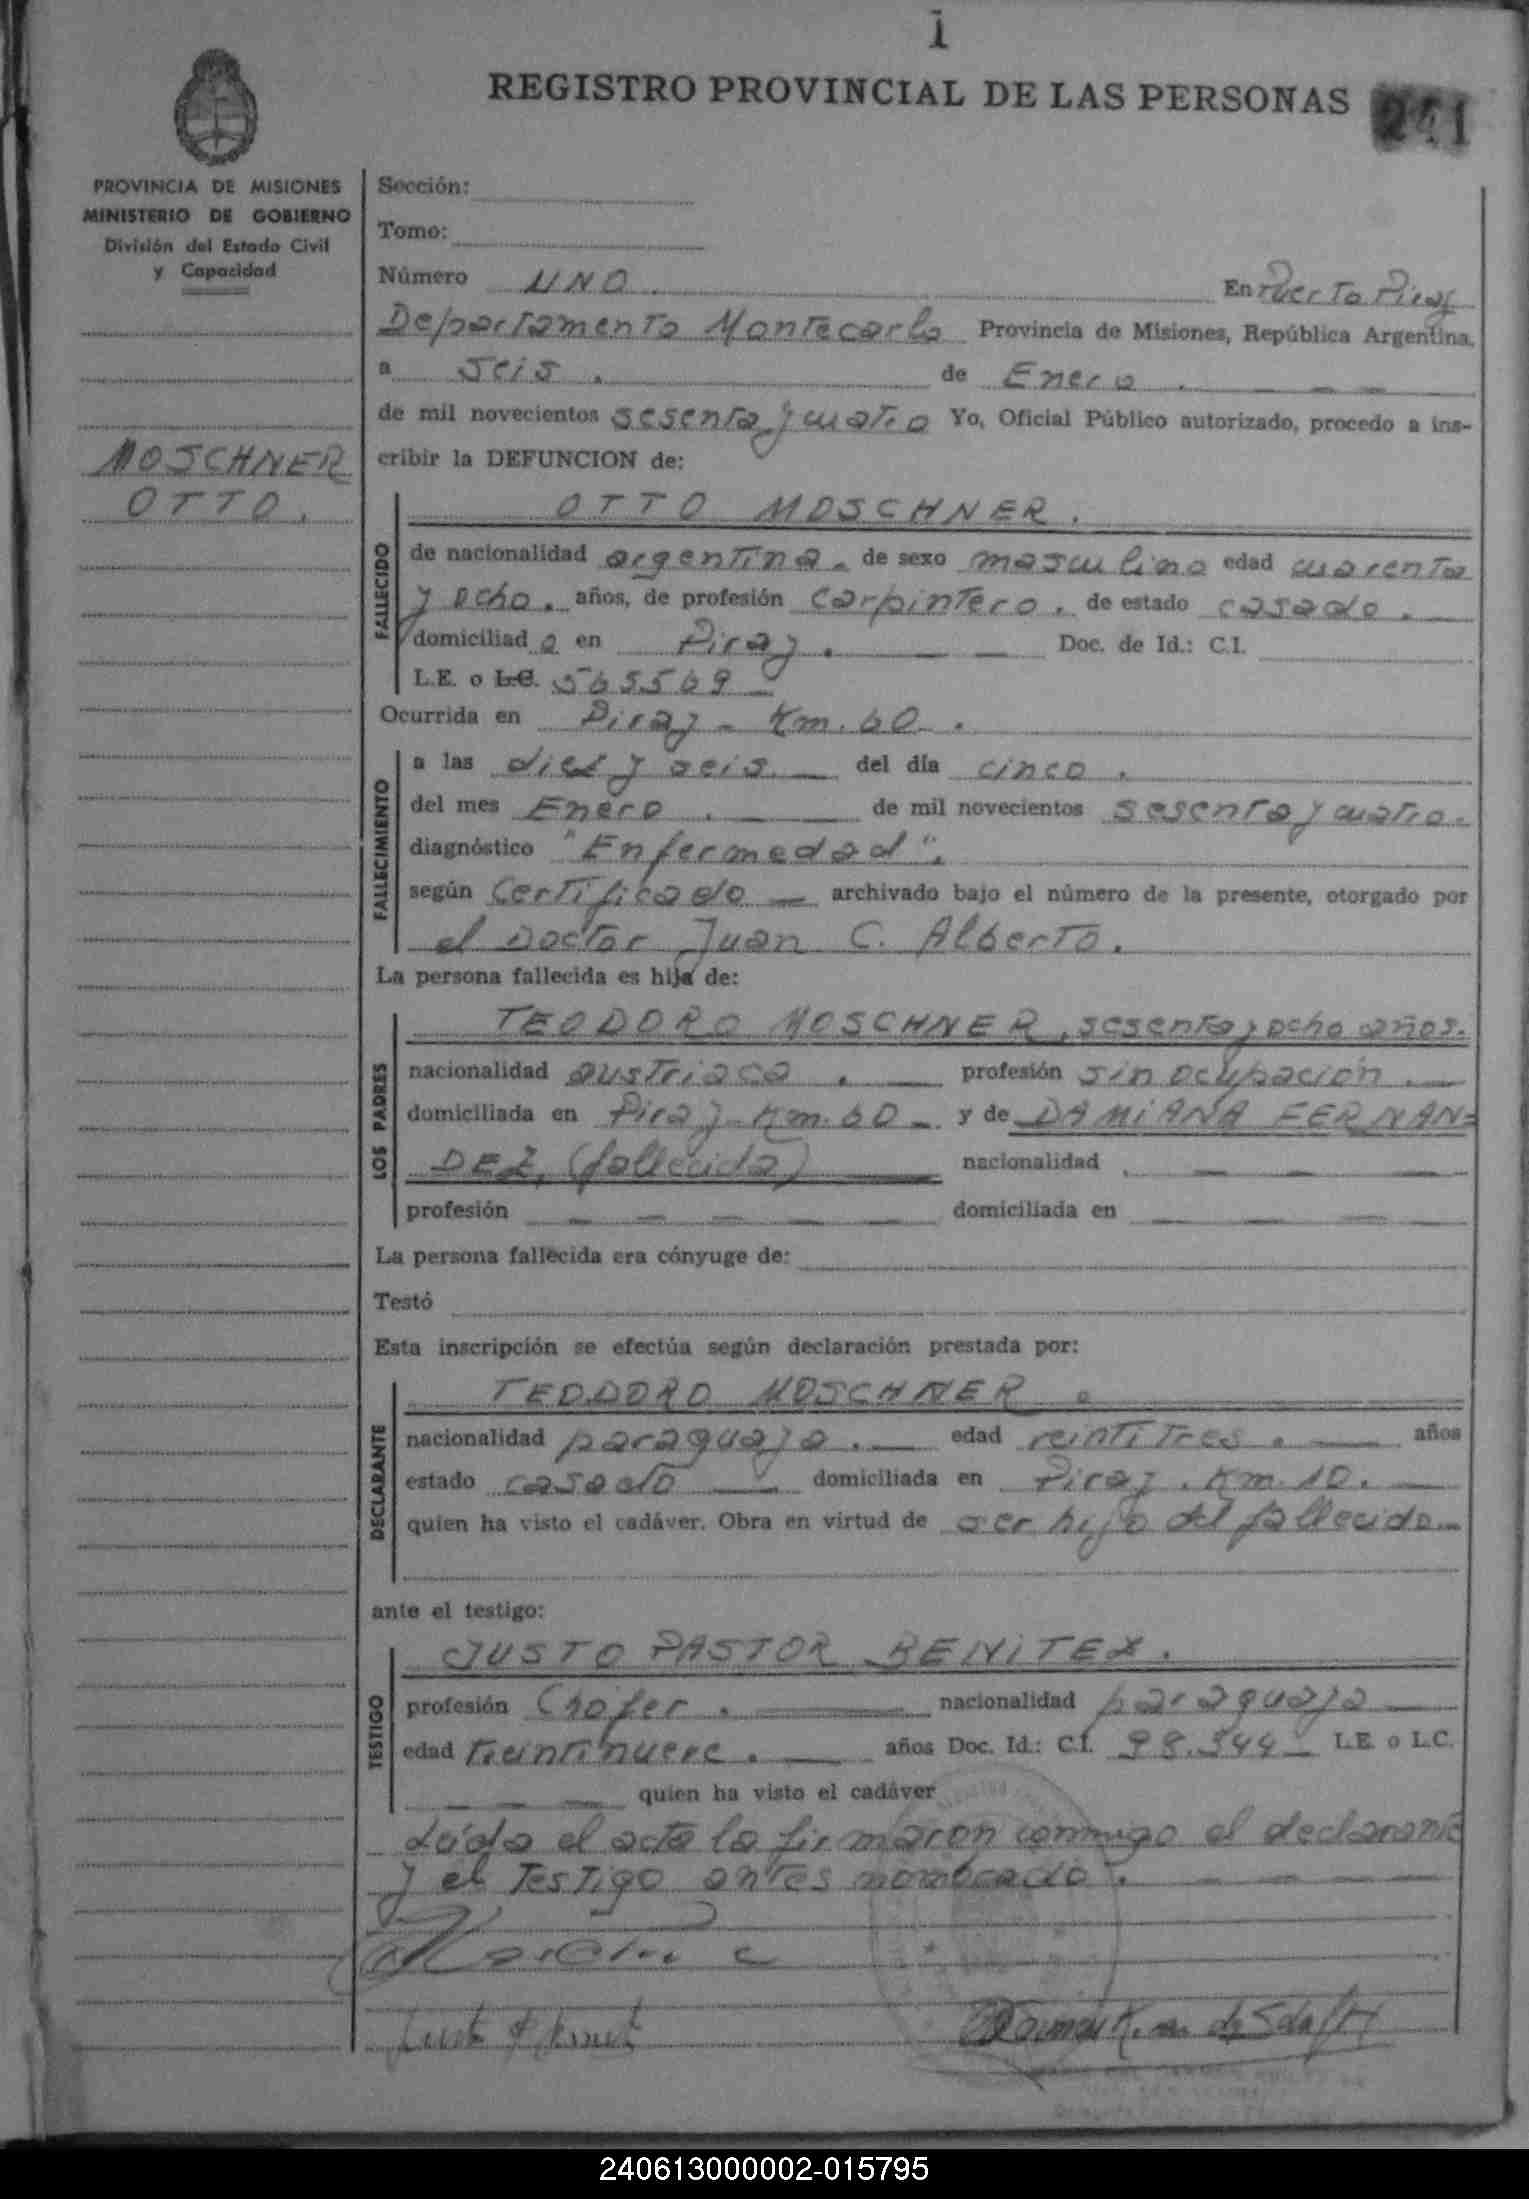 1
REGISTRO PROVINCIAL DE LAS PERSONAS 241
PROVINCIA DE MISIONES
MINISTERIO DE GOBIERNO
División del Estado Civil
y Capacidad
MOSCHNER
OTTO.
Sección:
Tomo:
Número UNO. En Puerto Piray
Departamento Montecarlo Provincia de Misiones, República Argentina,
a seis. de Enero.
de mil novecientos sesenta y cuatro Yo, Oficial Público autorizado, procedo a ins-
cribir la DEFUNCION de:
FALLECIDO
OTTO MOSCHNER.
de nacionalidad argentina. de sexo masculino edad cuarenta
y ocho. años, de profesión carpintero. de estado casado.
domiciliad o en Piray. Doc. de Id.: C.I.
L.E. o L.C. 565569
Ocurrida en Piray - Km. 60.
FALLECIMIENTO
a las diez y seis del día cinco.
del mes Enero. de mil novecientos sesenta y cuatro.
diagnóstico "Enfermedad".
según Certificado archivado bajo el número de la presente, otorgado por
el Doctor Juan C. Alberto.
La persona fallecida es hija de:
LOS PADRES
TEODORO MOSCHNER, sesenta y ocho años.
nacionalidad austriaca. profesión sin ocupación.
domiciliada en Piray Km. 60 y de DAMIANA FERNAN=
DEZ, (fallecida) nacionalidad
profesión domiciliada en
La persona fallecida era cónyuge de:
Testó
Esta inscripción se efectúa según declaración prestada por:
DECLARANTE
TEODORO MOSCHNER.
nacionalidad paraguaya. edad veintitres. años
estado casado domiciliada en Piray. Km. 10.
quien ha visto el cadáver. Obra en virtud de ser hijo del fallecido.
ante el testigo:
TESTIGO
JUSTO PASTOR BENITEZ.
profesión Chofer. nacionalidad paraguaya
edad treintinueve. años Doc. Id.: C.I. 98.344 L.E. o L.C.
quien ha visto el cadáver
Leída el acta la firmaron conmigo el declarante
y el testigo antes nombrado.
240613000002-015795